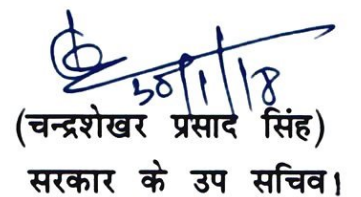 30/1/18
(चन्द्रशेखर प्रसाद सिंह)
सरकार के उप सचिव।